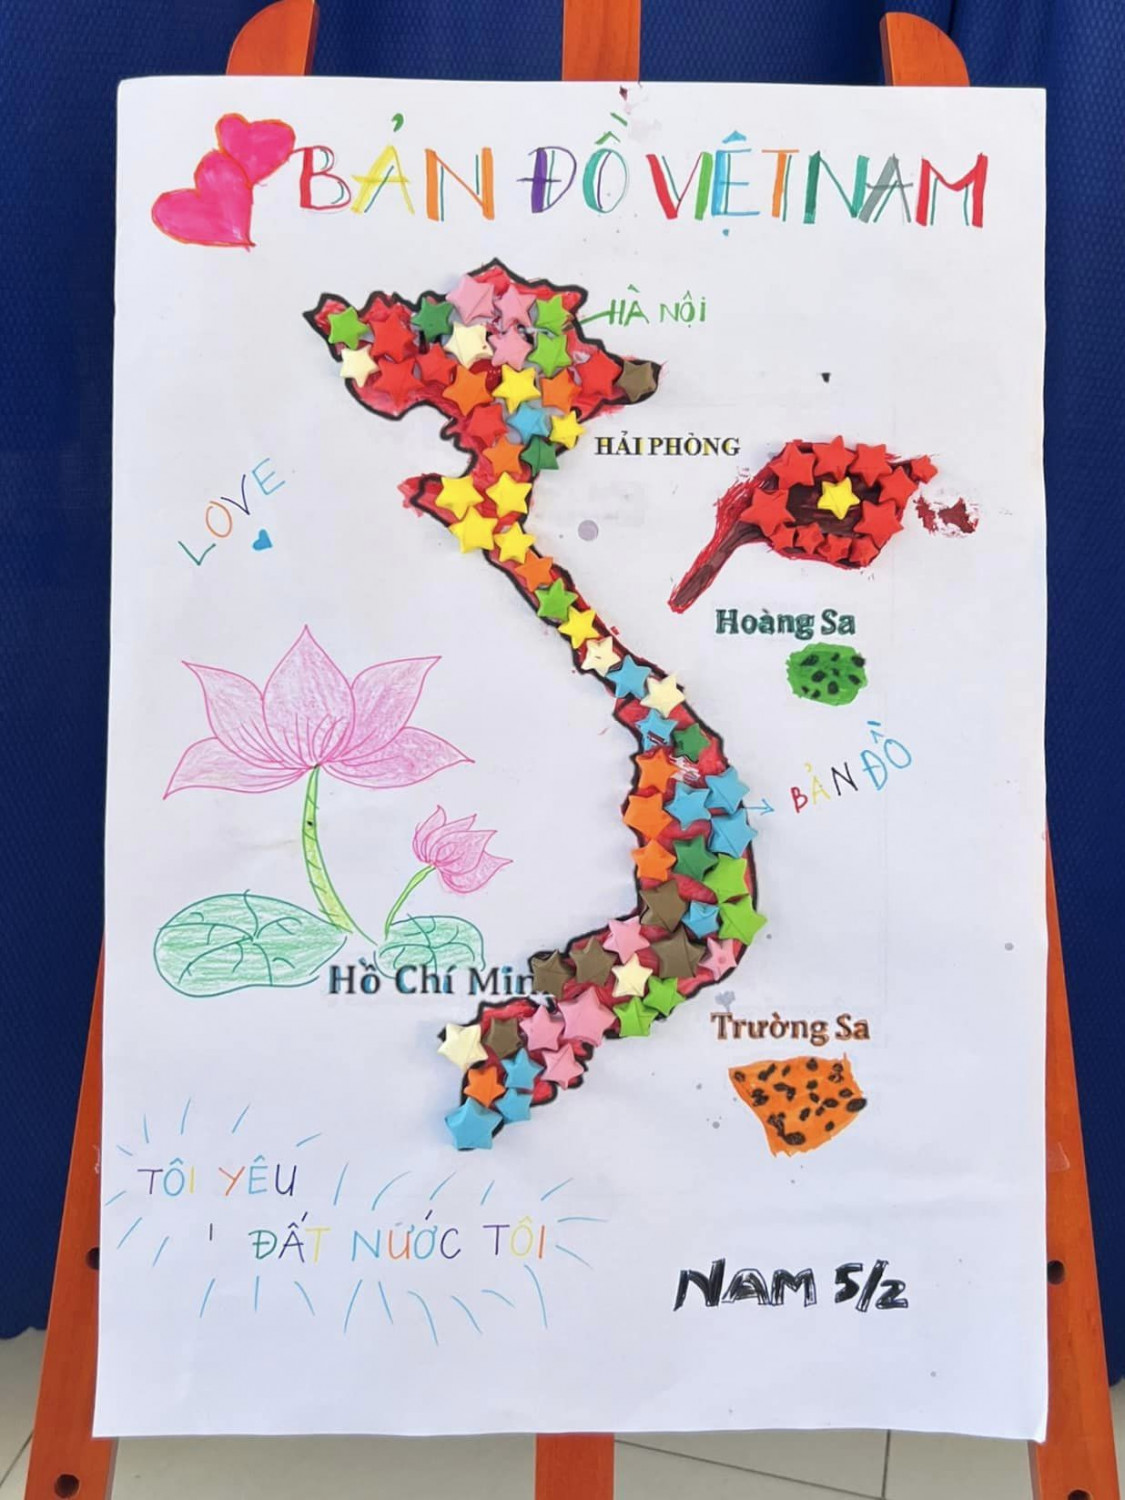 BẢN ĐỒ VIỆT NAM
HÀ NỘI
HẢI PHÒNG
LOVE
Hoàng Sa
BẢN ĐỒ
Hồ Chí Min
Trường Sa
TÔI YÊU
ĐẤT NƯỚC TÔI
NAM 5/2